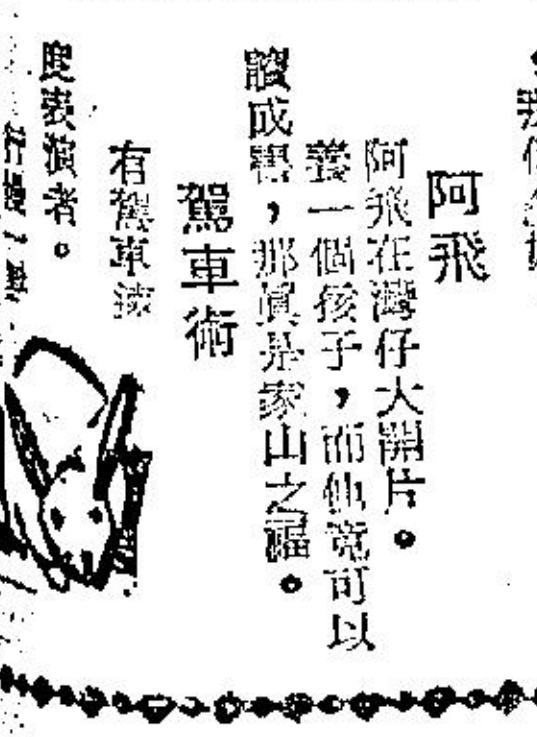 阿飛
阿飛在灣仔大開片。
養一個孩子，而他竟可以
讀成書，那眞是家山之福。
駕車術
有駕車技
度表演者。